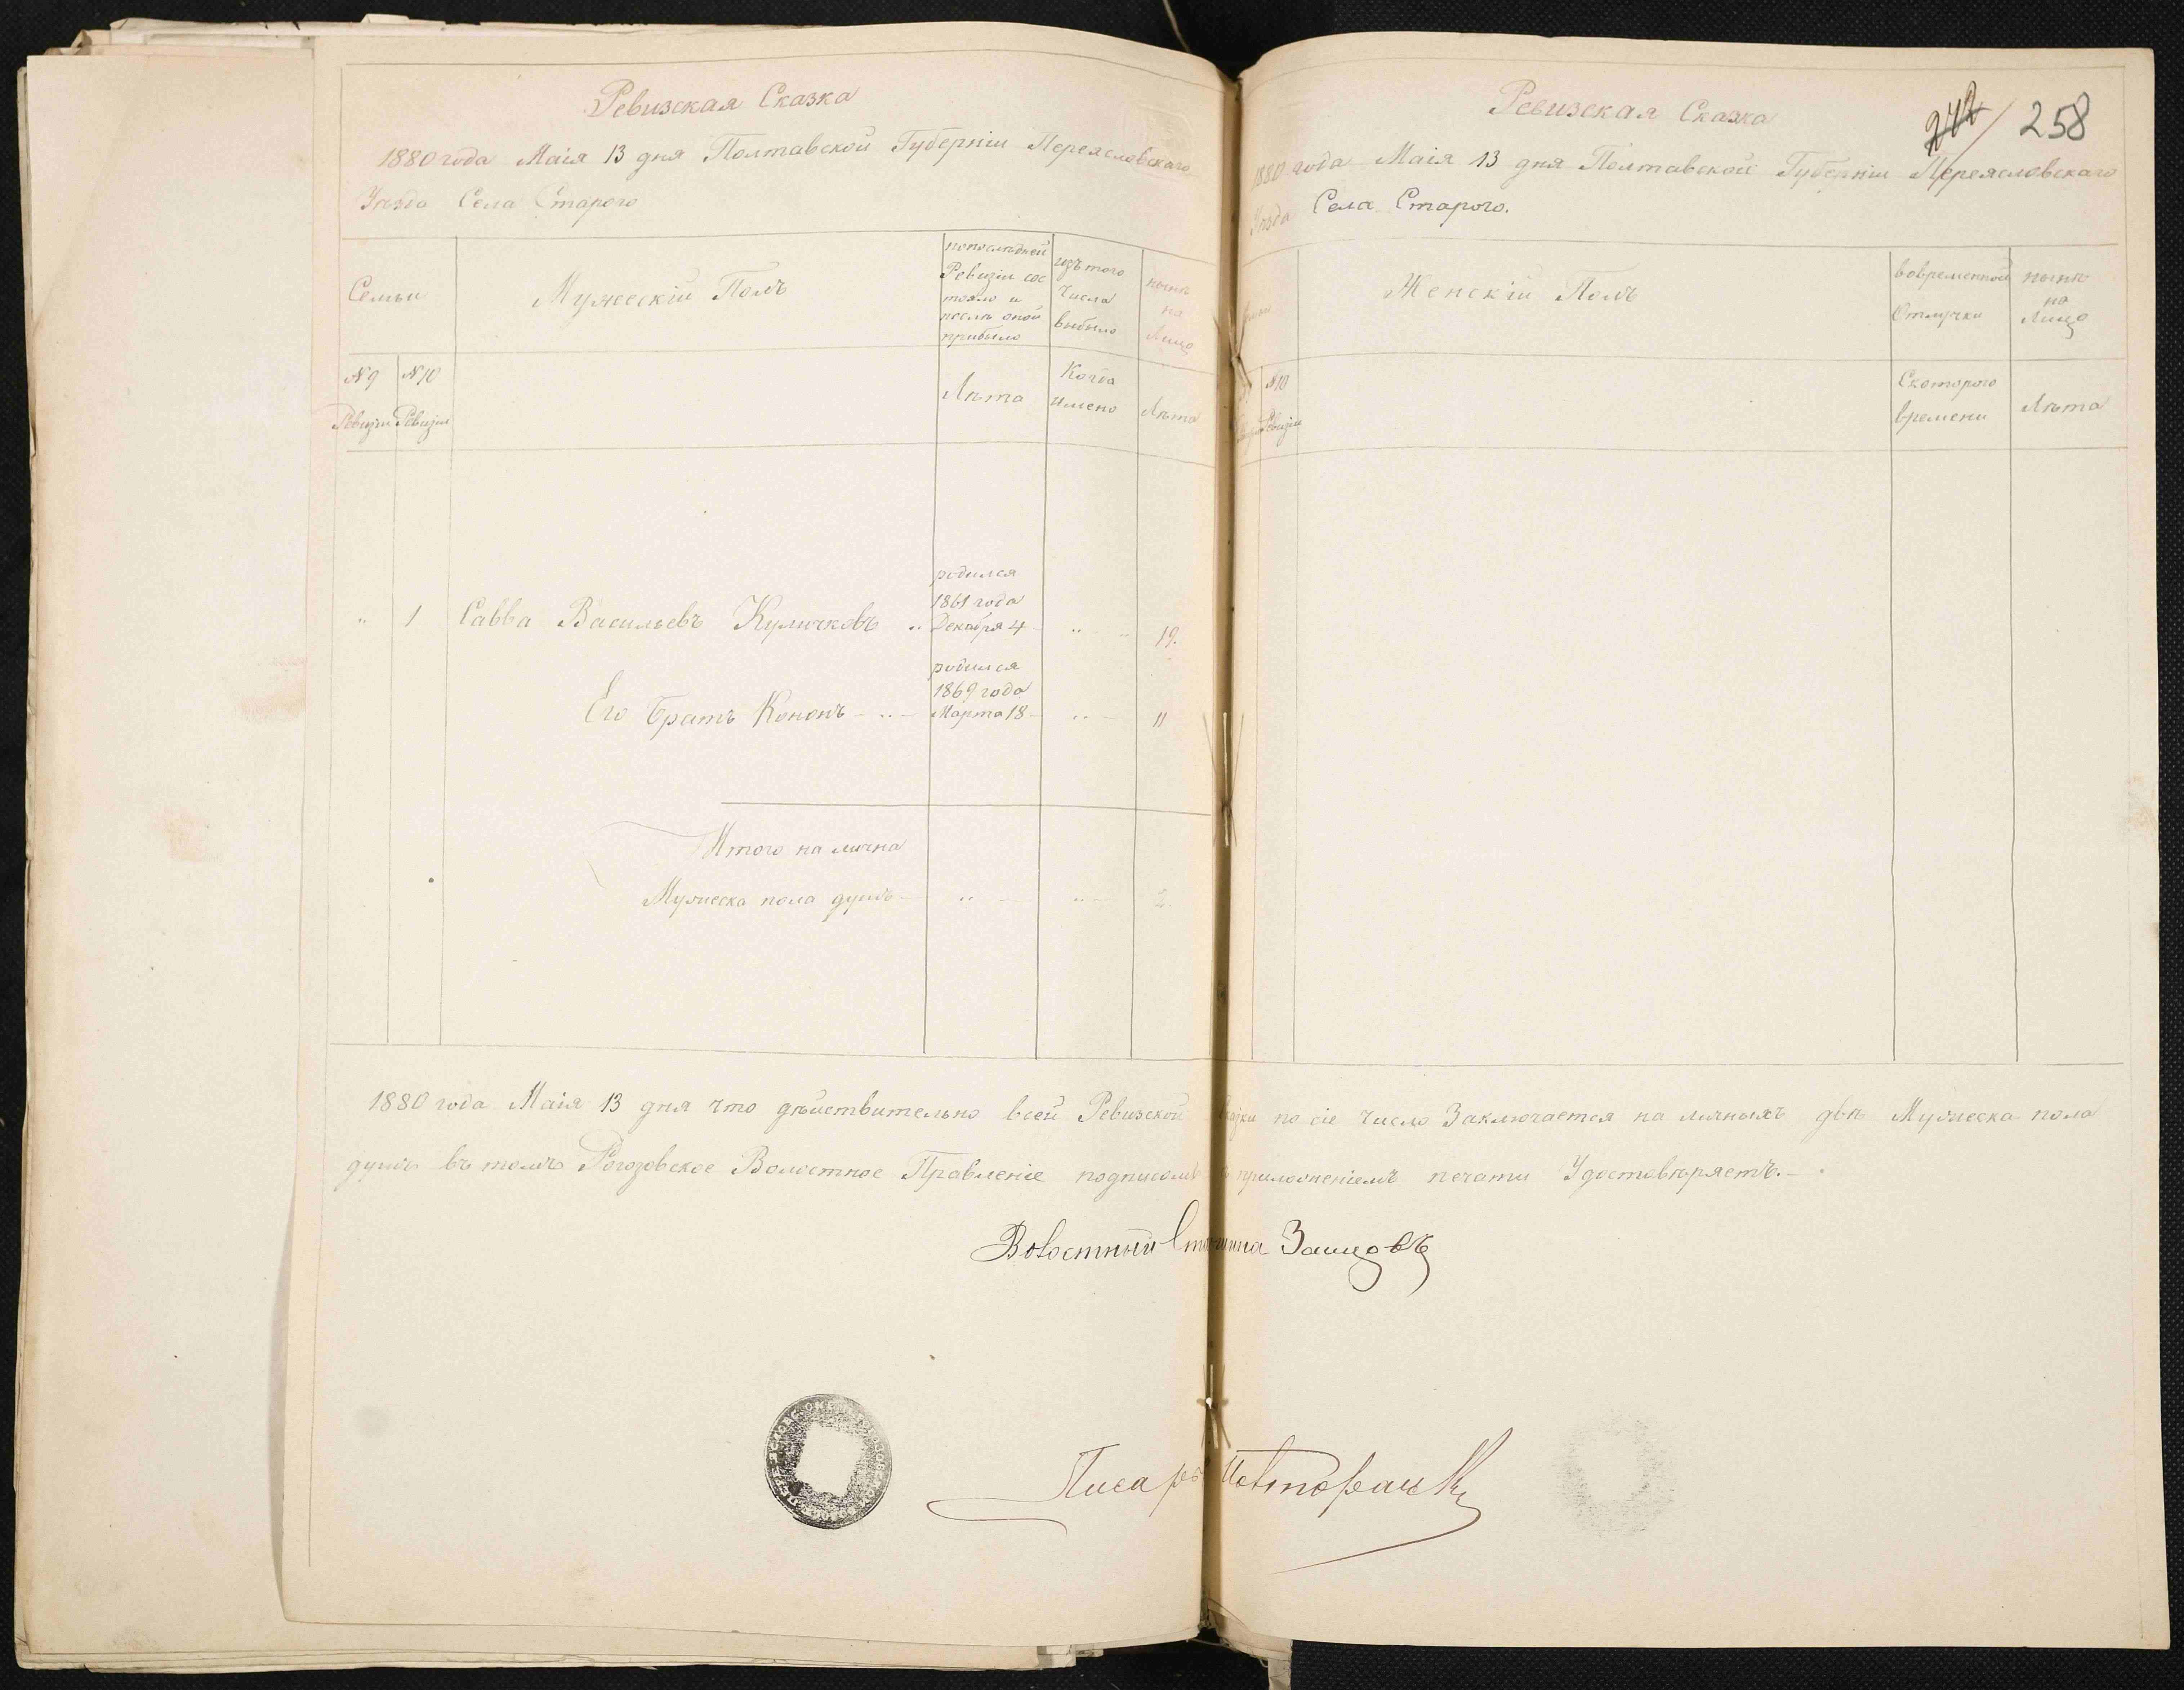 Ревизская Сказка
1880 года Маія 13 дня Полтавской Губерніи Переясловскаго
Уѣзда Села Старого
Семьи
Мужескій Полъ
попослѣдней
Ревизіи сос
тояло и
послѣ оной
прибыло
изъ того
числа
выбыло
нынѣ
на
Лицо
№ 9
Ревизіи
№ 10
Ревизіи
Лѣта
Когда
имено
Лѣта
родился
1861 года
„ 1 Савва Васильевъ Куличковъ „ Декабря 4 „ „ 19.
родился
1869 года
Его братъ Кононъ - „ - Марта 18 - „ - 11
Итого на лична
Мужеска пола душъ - „ - „ - 2.
Ревизская Сказка
242 / 258
1880 года Маія 13 дня Полтавской Губерніи Переясловскаго
Уѣзда Села Старого.
Женскій Полъ
вовременной
Отлучки
нынѣ
на
Лицо
№ 10
Ревизіи
Скоторого
времени
Лѣта
1880 года Маія 13 дня что дѣйствительно всей Ревизской Сказки по сіе число Заключается на личныхъ двѣ Мужеска пола
душъ въ томъ Рогозовское Волостное Правленіе подписомъ приложеніемъ печати Удостовѣряетъ. -
Волостный Старшина
Писарь